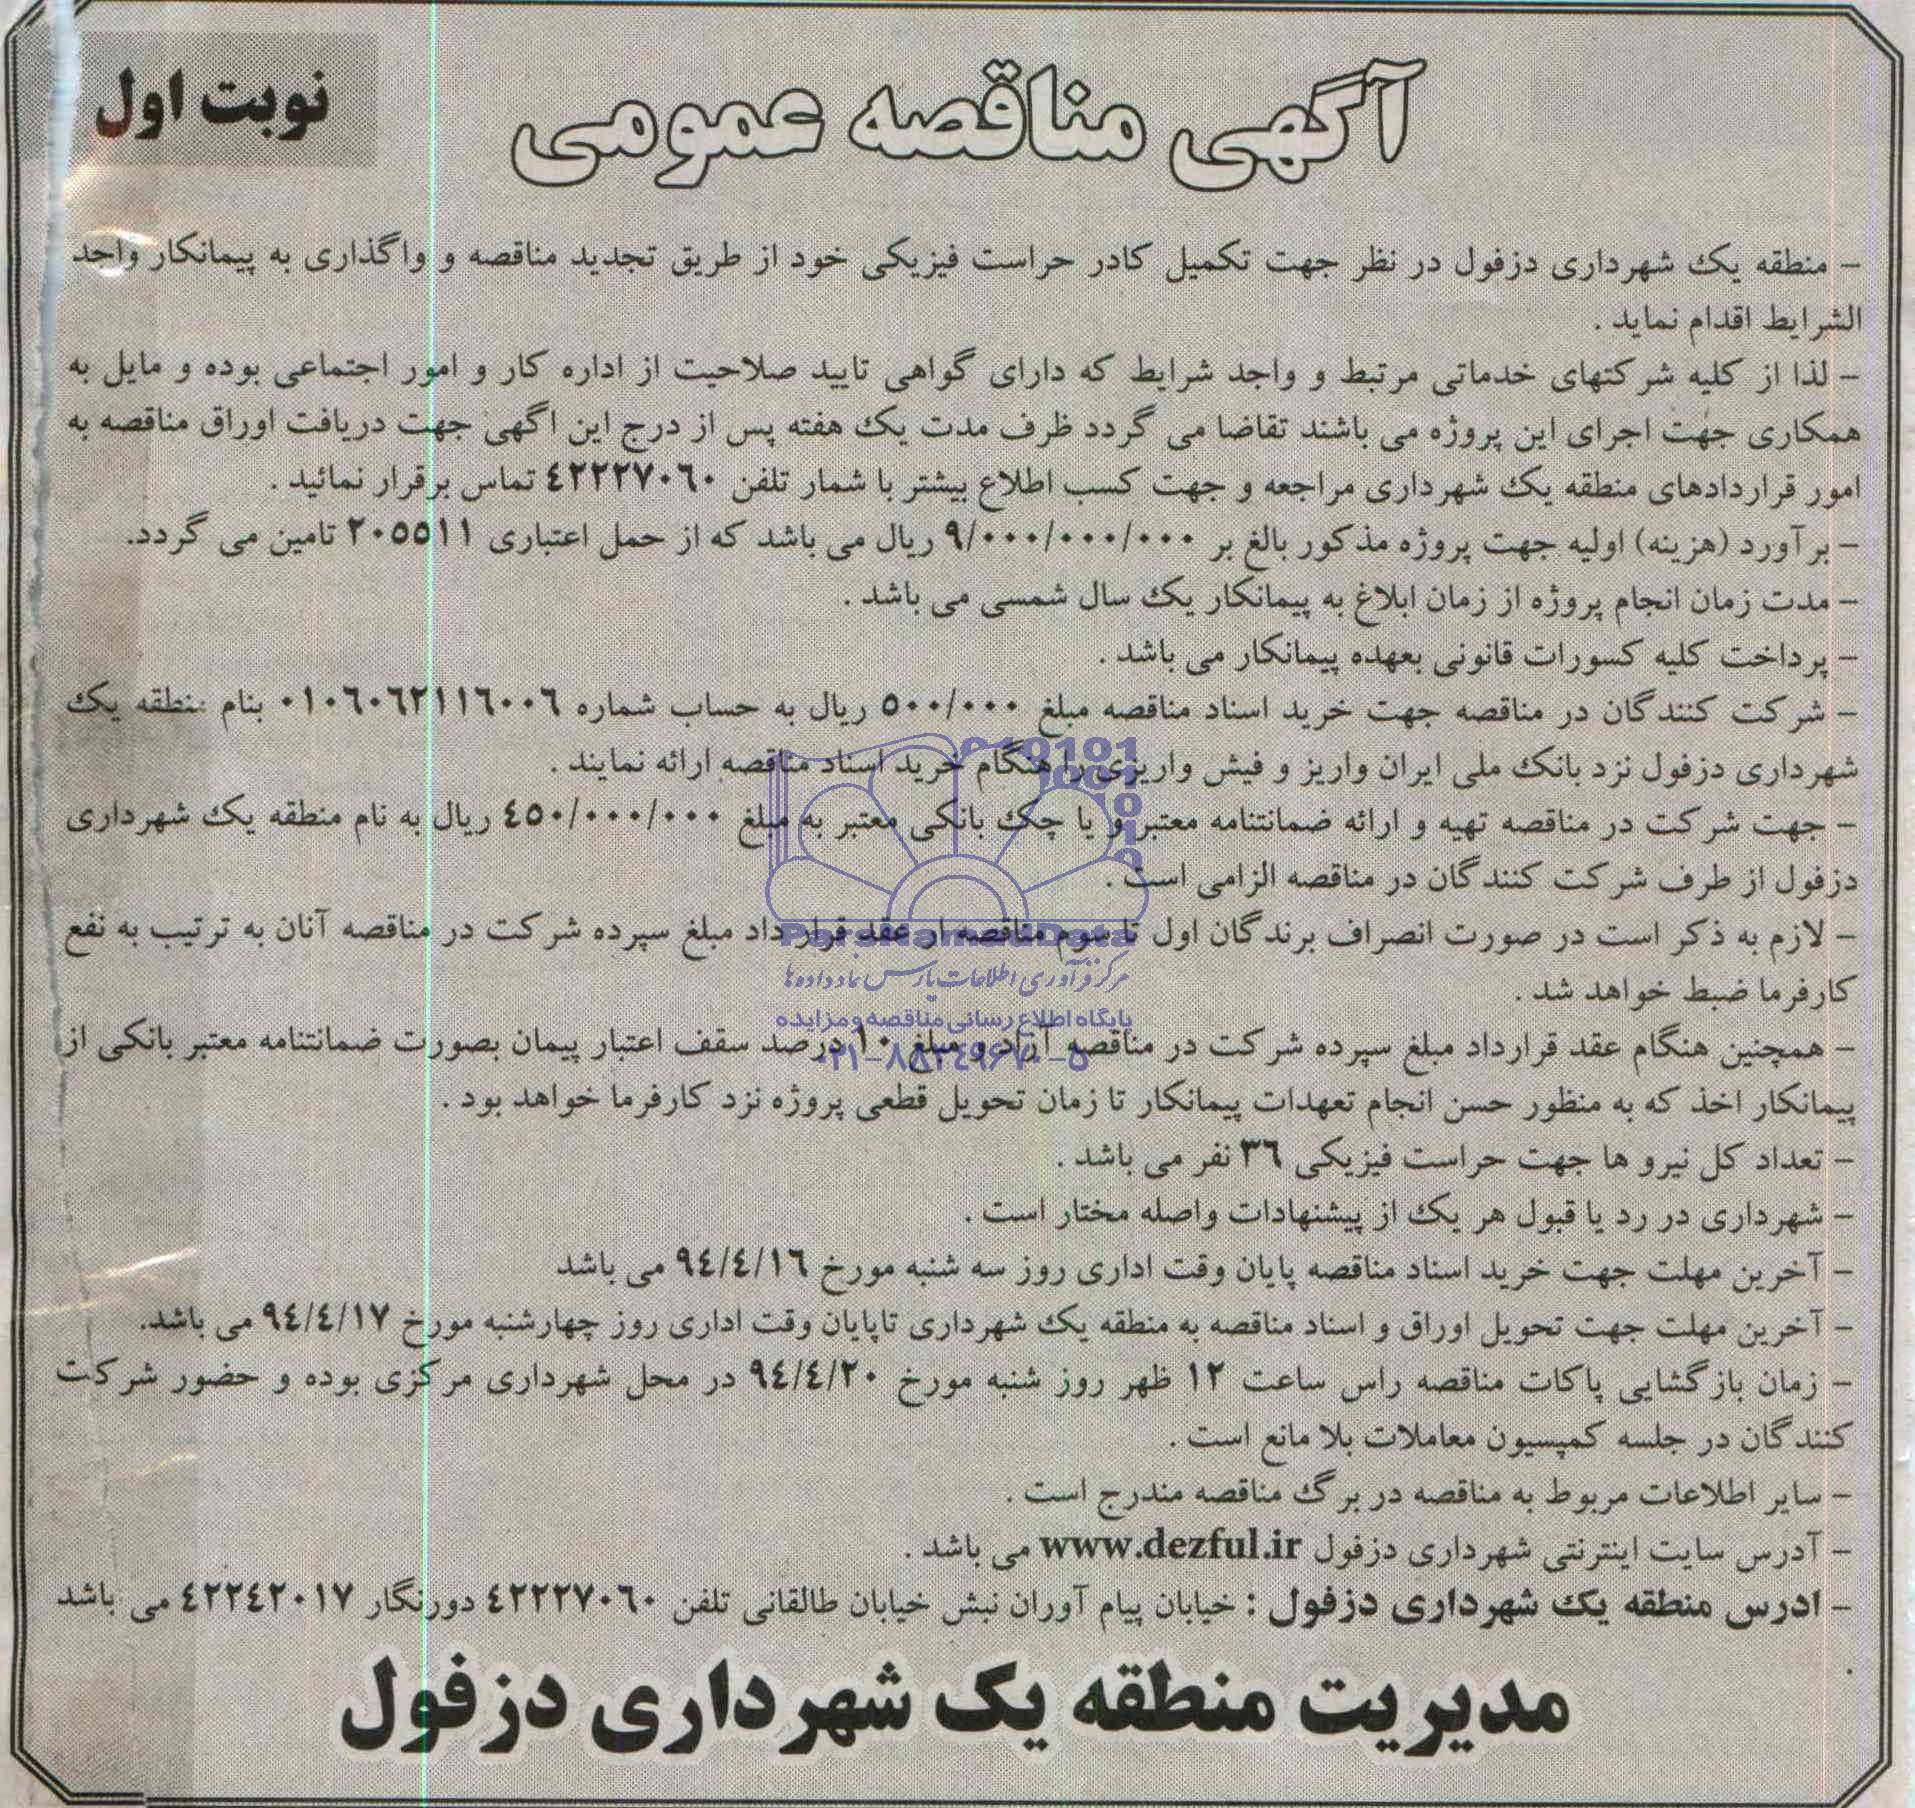 آگهی مناقصه عمومی
نوبت اول
– منطقه یک شهرداری دزفول در نظر جهت تکمیل کادر حراست فیزیکی خود از طریق تجدید مناقصه و واگذاری به پیمانکار واجد
الشرایط اقدام نماید .
– لذا از کلیه شرکتهای خدماتی مرتبط و واجد شرایط که دارای گواهی تایید صلاحیت از اداره کار و امور اجتماعی بوده و مایل به
همکاری جهت اجرای این پروژه می باشند تقاضا می گردد ظرف مدت یک هفته پس از درج این اگهی جهت دریافت اوراق مناقصه به
امور قراردادهای منطقه یک شهرداری مراجعه و جهت کسب اطلاع بیشتر با شمار تلفن ٤٢٢٢٧٠٦٠ تماس برقرار نمائید .
– برآورد (هزینه) اولیه جهت پروژه مذکور بالغ بر ٩/٠٠٠/٠٠٠/٠٠٠ ریال می باشد که از حمل اعتباری ٢٠٥٥١١ تامین می گردد.
– مدت زمان انجام پروژه از زمان ابلاغ به پیمانکار یک سال شمسی می باشد .
– پرداخت کلیه کسورات قانونی بعهده پیمانکار می باشد .
– شرکت کنندگان در مناقصه جهت خرید اسناد مناقصه مبلغ ٥٠٠/٠٠٠ ریال به حساب شماره ٠١٠٦٠٦٢١١٦٠٠٦ بنام منطقه یک
شهرداری دزفول نزد بانک ملی ایران واریز و فیش واریزی را هنگام خرید اسناد مناقصه ارائه نمایند .
– جهت شرکت در مناقصه تهیه و ارائه ضمانتنامه معتبر و یا چک بانکی معتبر به مبلغ ٤٥٠/٠٠٠/٠٠٠ ریال به نام منطقه یک شهرداری
دزفول از طرف شرکت کنندگان در مناقصه الزامی است .
– لازم به ذکر است در صورت انصراف برندگان اول تا سوم مناقصه از عقد قرار داد مبلغ سپرده شرکت در مناقصه آنان به ترتیب به نفع
کارفرما ضبط خواهد شد .
– همچنین هنگام عقد قرارداد مبلغ سپرده شرکت در مناقصه آزاد و مبلغ ١٠ درصد سقف اعتبار پیمان بصورت ضمانتنامه معتبر بانکی از
پیمانکار اخذ که به منظور حسن انجام تعهدات پیمانکار تا زمان تحویل قطعی پروژه نزد کارفرما خواهد بود .
– تعداد کل نیرو ها جهت حراست فیزیکی ٣٦ نفر می باشد .
– شهرداری در رد یا قبول هر یک از پیشنهادات واصله مختار است .
– آخرین مهلت جهت خرید اسناد مناقصه پایان وقت اداری روز سه شنبه مورخ ٩٤/٤/١٦ می باشد
– آخرین مهلت جهت تحویل اوراق و اسناد مناقصه به منطقه یک شهرداری تاپایان وقت اداری روز چهارشنبه مورخ ٩٤/٤/١٧ می باشد.
– زمان بازگشایی پاکات مناقصه راس ساعت ١٢ ظهر روز شنبه مورخ ٩٤/٤/٢٠ در محل شهرداری مرکزی بوده و حضور شرکت
کنندگان در جلسه کمیسیون معاملات بلا مانع است .
– سایر اطلاعات مربوط به مناقصه در برگ مناقصه مندرج است .
– آدرس سایت اینترنتی شهرداری دزفول www.dezful.ir می باشد .
– ادرس منطقه یک شهرداری دزفول : خیابان پیام آوران نبش خیابان طالقانی تلفن ٤٢٢٢٧٠٦٠ دورنگار ٤٢٢٤٢٠١٧ می باشد
.
مدیریت منطقه یک شهرداری دزفول
ParsNamadData
مرکز فرآوری اطلاعات پارس نماد داده ها
پایگاه اطلاع رسانی مناقصه و مزایده
۰۲۱-۸۸۳٤۹۶۷۰-۵